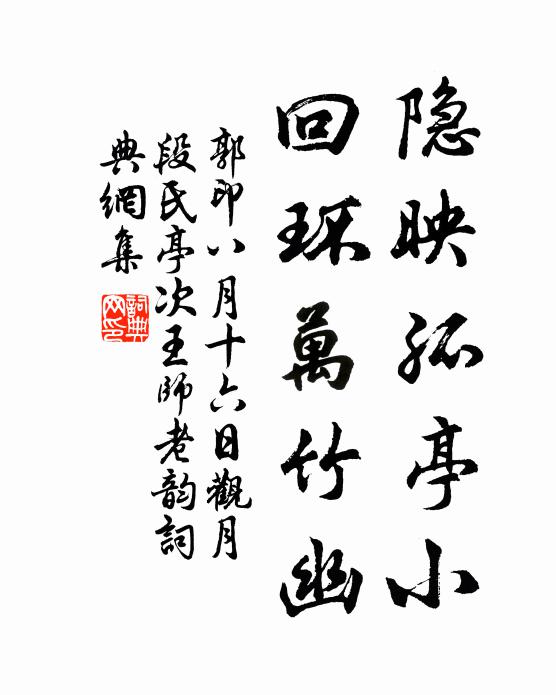 隐映孤亭小
回环萬竹幽
郭印八月十六日觀月
段氏亭次王師老韵詞
典網集
詞典网印